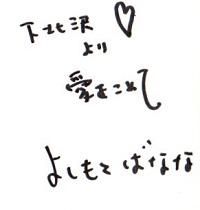 下北沢
より♡
愛をこめて
よしもとばなな